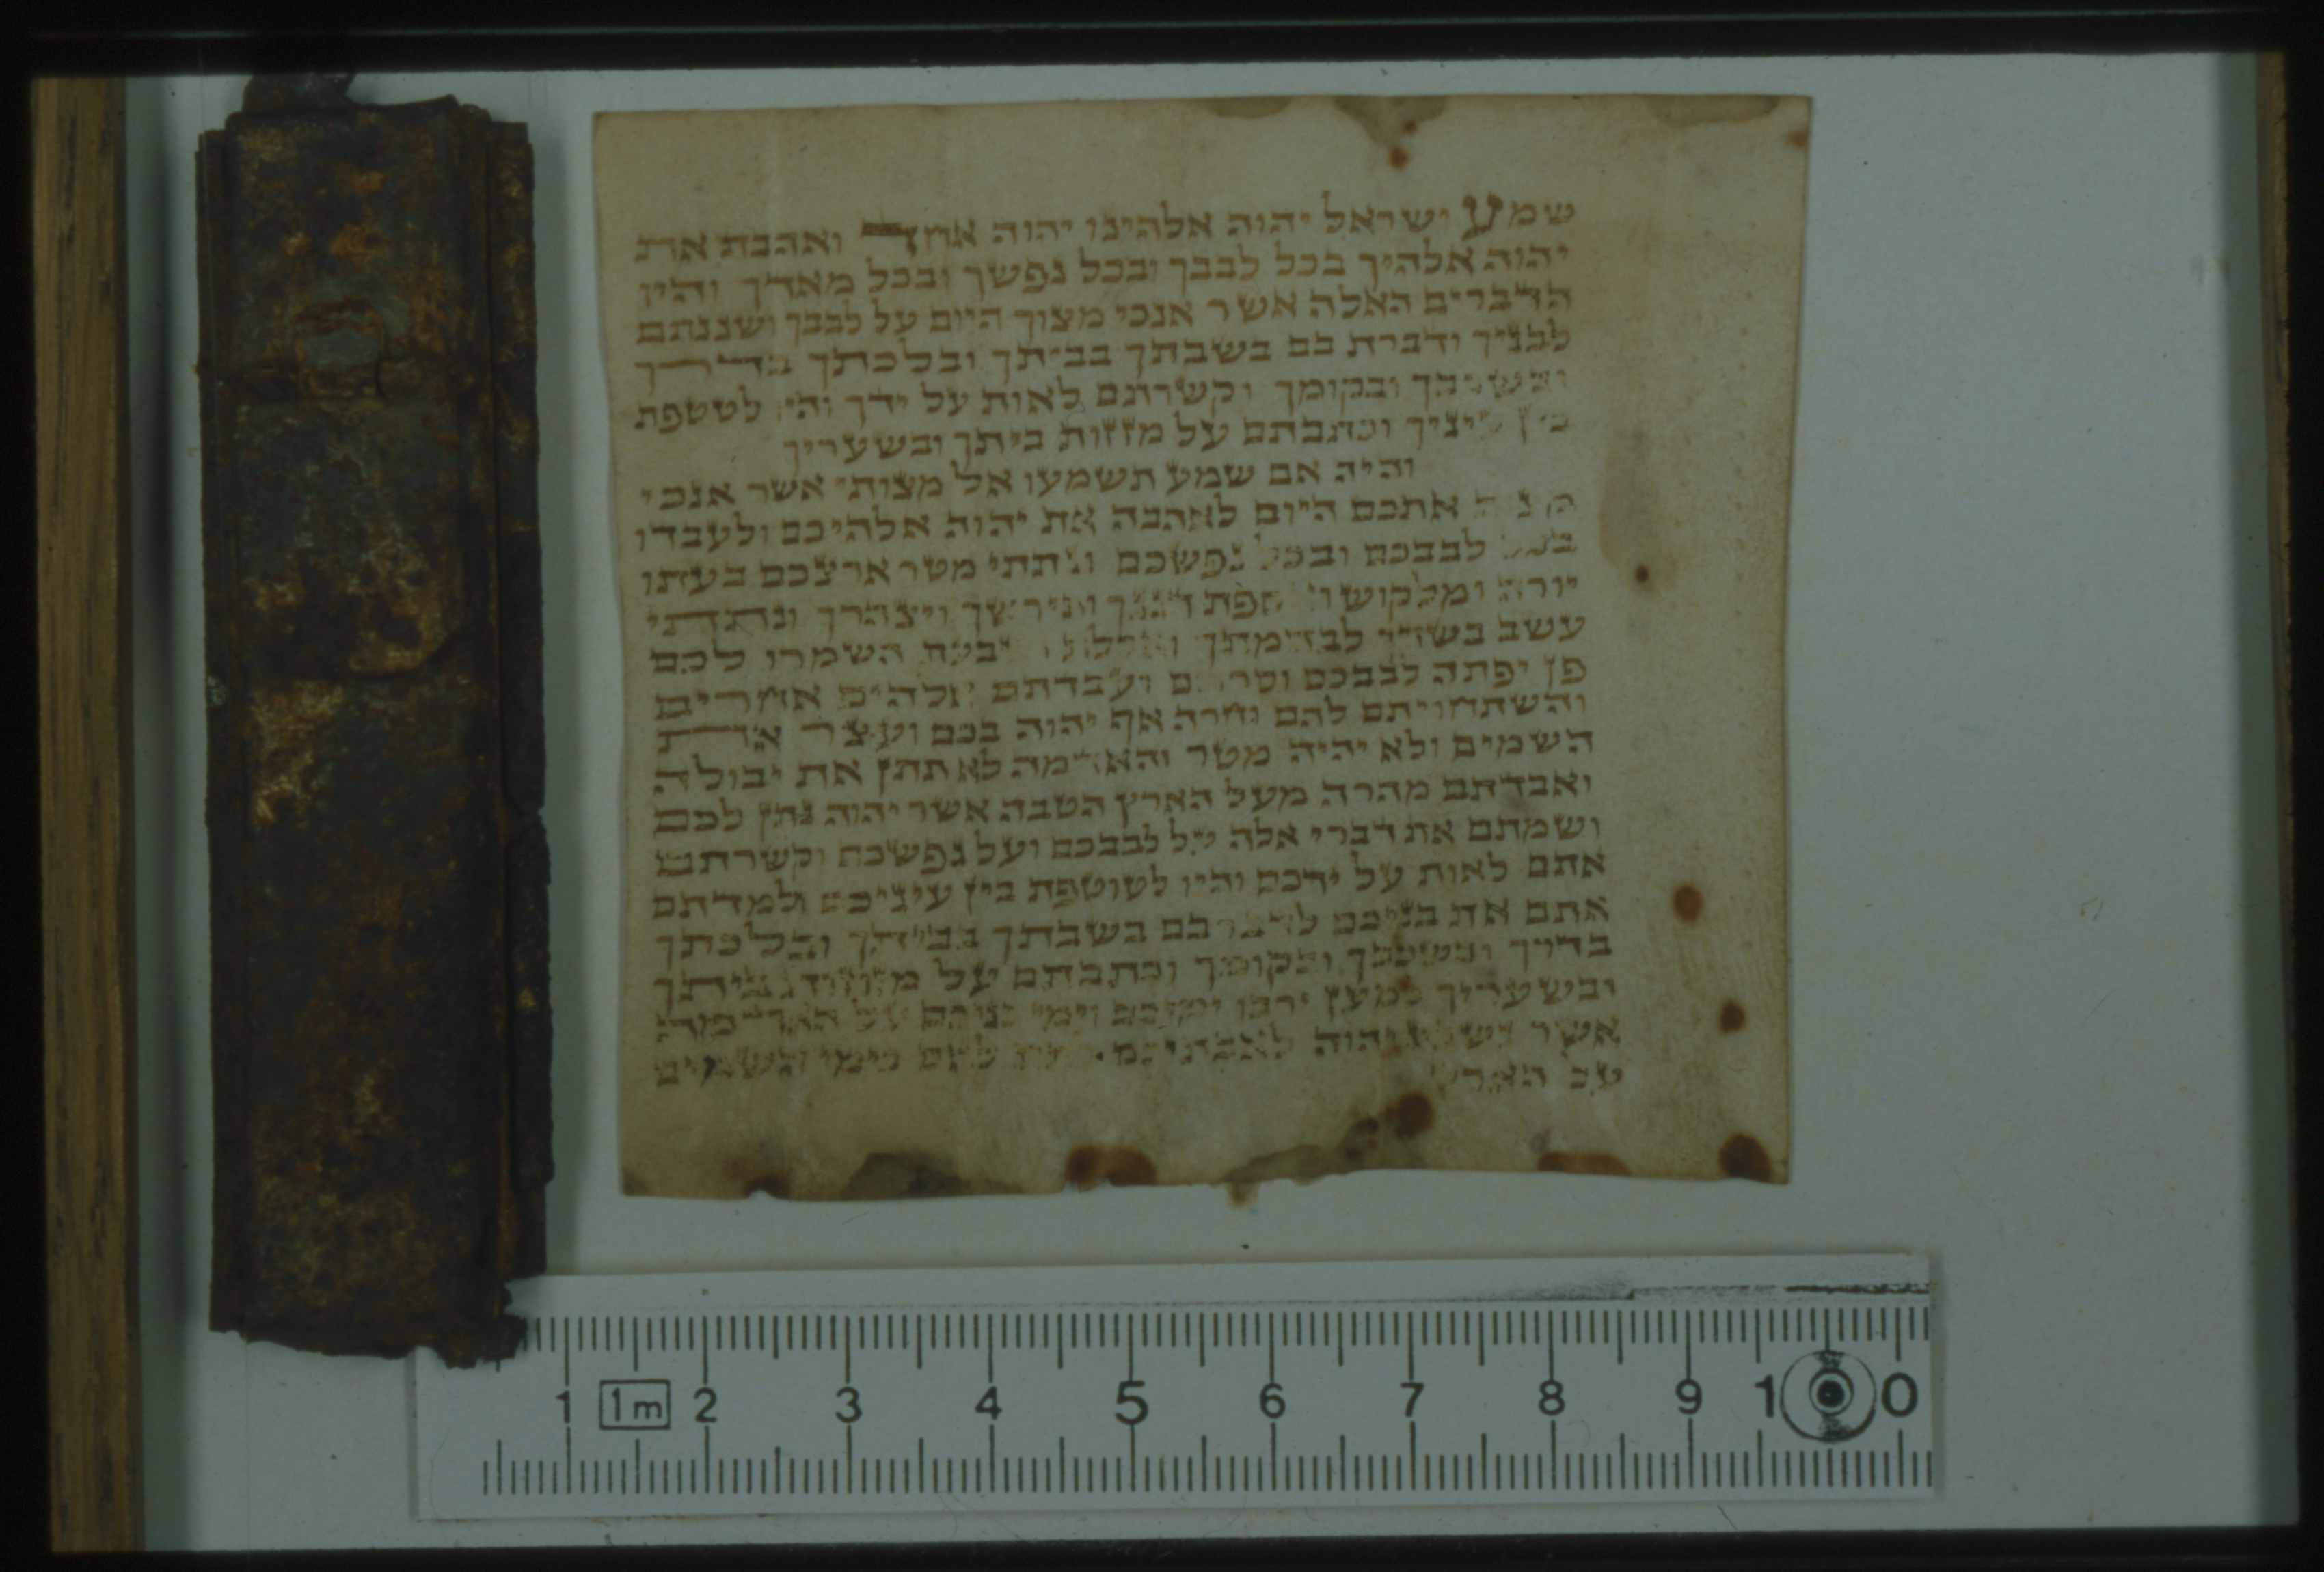 שמע ישראל יהוה אלהינו יהוה אחד ואהבת את
יהוה אלהיך בכל לבבך ובכל נפשך ובכל מאדך והיו
הדברים האלה אשר אנכי מצוך היום על לבבך ושננתם
לבניך ודברת בם בשבתך בביתך ובלכתך בדרך
ובשכבך ובקומך וקשרתם לאות על ידך והיו לטטפת
בין עיניך וכתבתם על מזזות ביתך ובשעריך
והיה אם שמע תשמעו אל מצותי אשר אנכי
אתכם היום לאהבה את יהוה אלהיכם ולעבדו
בכל לבבכם ובכל נפשכם ונתתי מטר ארצכם בעתו
יורה ומלקוש דגנך ותירשך ויצהרך ונתתי
עשב בשדך לבהמתך השמרו לכם
פן יפתה לבבכם ועבדתם אלהים אחרים
והשתחויתם להם וחרה אף יהוה בכם ועצר את
השמים ולא יהיה מטר והאדמה לא תתן את יבולה
ואבדתם מהרה מעל הארץ הטבה אשר יהוה נתן לכם
ושמתם את דברי אלה על לבבכם ועל נפשכם וקשרתם
אתם לאות על ידכם והיו לטוטפת בין עיניכם ולמדתם
אתם את בניכם לדבר בם בשבתך בביתך ובלכתך
בדרך ובשכבך ובקומך וכתבתם על מזוזות ביתך
ובשעריך למען ירבו ימיכם וימי בניכם על האדמה
אשר נשבע יהוה לאבתיכם לתת להם כימי השמים
על הארץ
1 1m 2 3 4 5 6 7 8 9 10